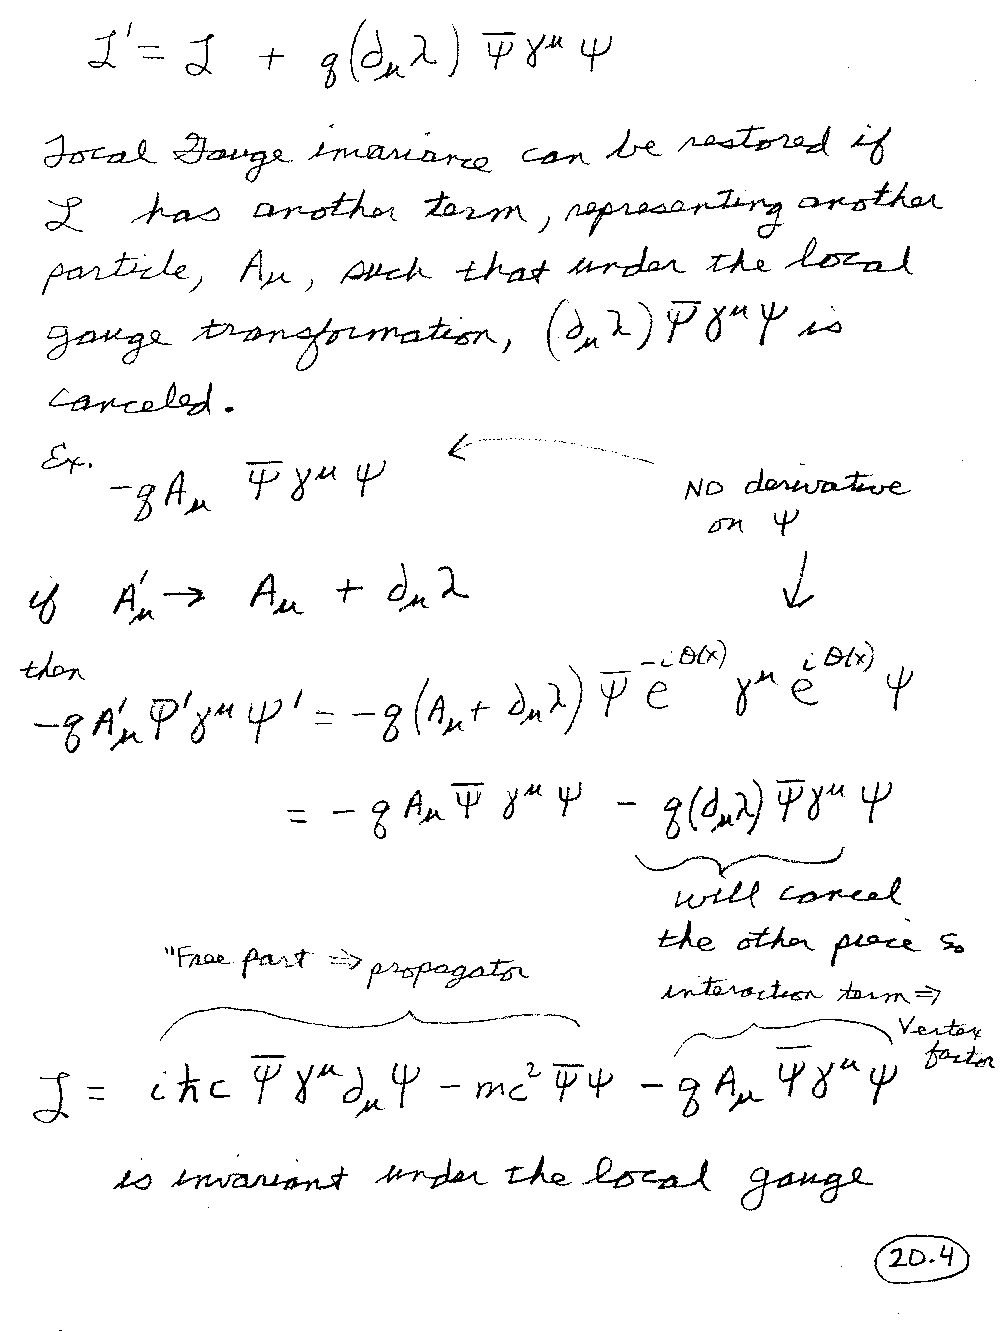 ℒ' = ℒ + q(∂_μ λ) Ψ̄ γ^μ Ψ
Local Gauge invariance can be restored if
ℒ has another term, representing another
particle, A_μ, such that under the local
gauge transformation, (∂_μ λ) Ψ̄ γ^μ Ψ is
canceled.
Ex.
-q A_μ Ψ̄ γ^μ Ψ ←
NO derivative
on Ψ
↓
if A'_μ → A_μ + ∂_μ λ
then
-q A'_μ Ψ̄' γ^μ Ψ' = -q (A_μ + ∂_μ λ) Ψ̄ e^{-iθ(x)} γ^μ e^{iθ(x)} Ψ
= -q A_μ Ψ̄ γ^μ Ψ - q(∂_μ λ) Ψ̄ γ^μ Ψ
will cancel
the other piece so
"Free part ⇒ propagator
interaction term ⇒
Vertex
factor
ℒ = iħc Ψ̄ γ^μ ∂_μ Ψ - mc² Ψ̄Ψ - q A_μ Ψ̄ γ^μ Ψ
is invariant under the local gauge
20.4